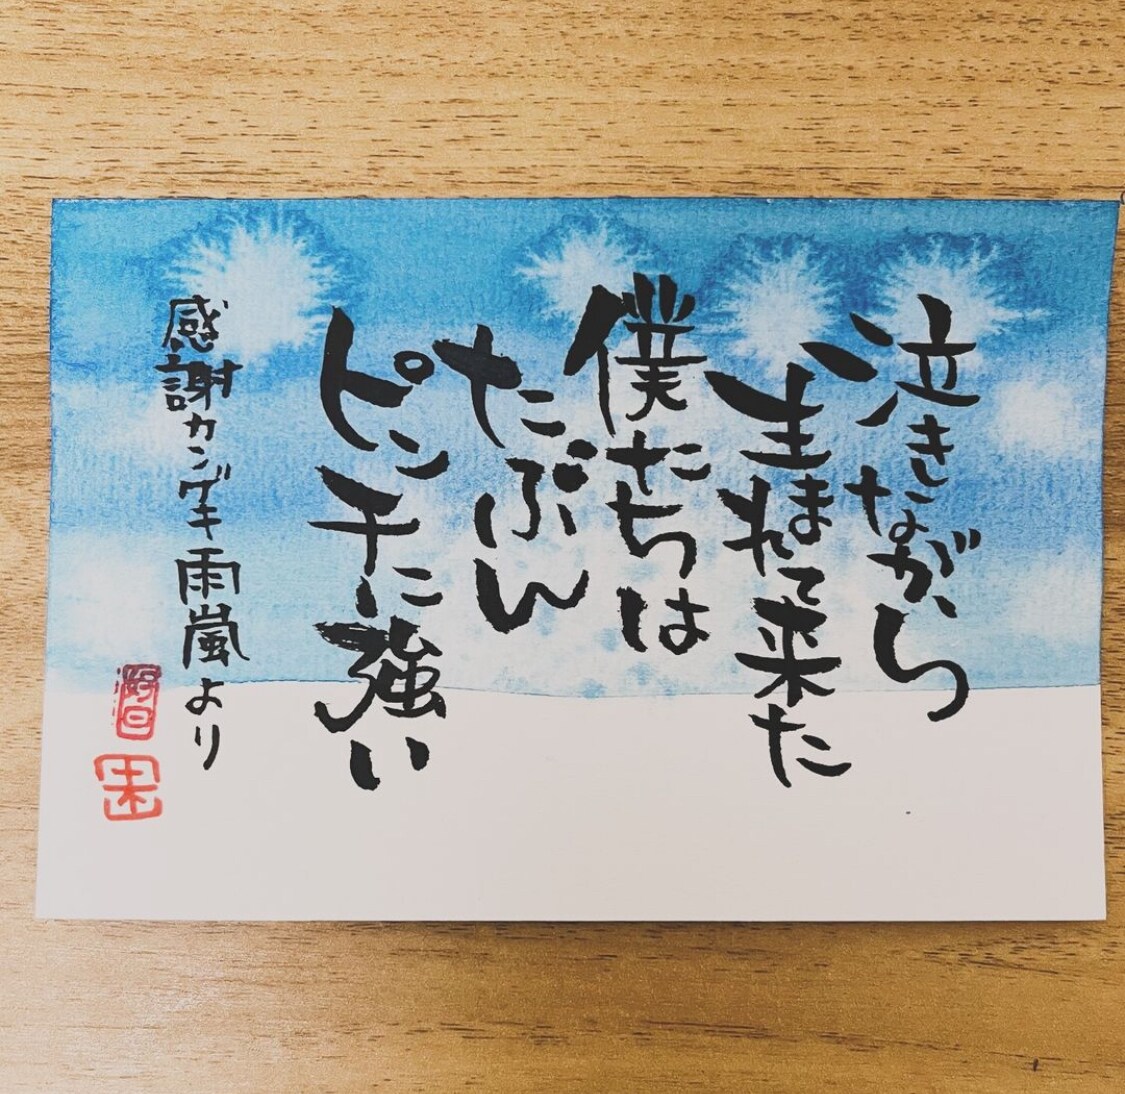 泣きながら
生まれて来た
僕たちは
たぶん
ピンチに強い
感謝カンゲキ雨嵐より